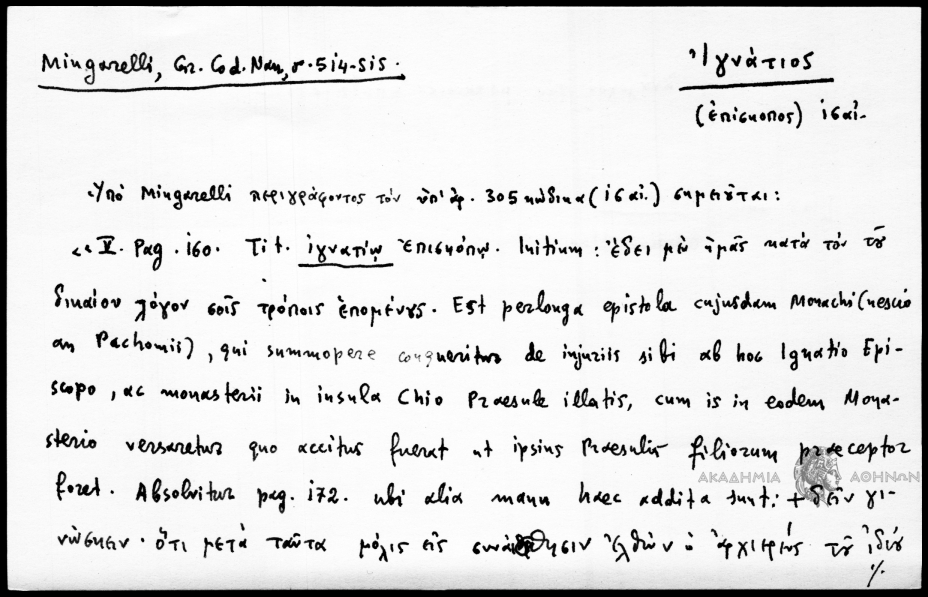 Mingarelli, Gr. Cod. Nan, σ. 514-515.
Ἰγνάτιος
(ἐπίσκοπος) ις αἰ.
Ὑπὸ Mingarelli περιγράφοντος τὸν ὑπ' ἀρ. 305 κώδικα (ις αἰ.) σημειοῦται:
« V. Pag. 160. Tit. ἰγνατίῳ ἐπισκόπῳ. Initium: ἔδει μὲν ἡμᾶς κατὰ τὸν τοῦ
δικαίου λόγον σοῖς τρόποις ἑπομένους. Est perlonga epistola cujusdam Monachi (nescio
an Pachomii), qui summopere conqueritur de injuriis sibi ab hoc Ignatio Epi-
scopo, ac monasterii in insula Chio Praesule illatis, cum is in eodem Mona-
sterio versaretur quo accitus fuerat ut ipsius Praesulis filiorum praeceptor
foret. Absolvitur pag. 172. ubi alia manu haec addita sunt: + δεῖν γι-
νώσκειν ὅτι μετὰ ταῦτα μόλις εἰς συναίσθησιν ἐλθὼν ὁ ἀρχιερεὺς τοῦ ἰδίου
%
ΑΚΑΔΗΜΙΑ ΑΘΗΝΩΝ